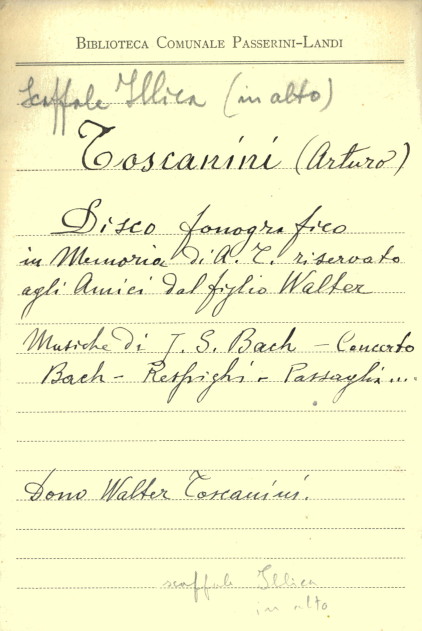 BIBLIOTECA COMUNALE PASSERINI-LANDI
Scaffale Illica (in alto)
Toscanini (Arturo)
Disco fonografico
in Memoria di A. T. riservato
agli Amici dal figlio Walter
Musiche di J. S. Bach - Concerto
Bach - Respighi - Passaglia...
Dono Walter Toscanini.
scaffale Illica
in alto